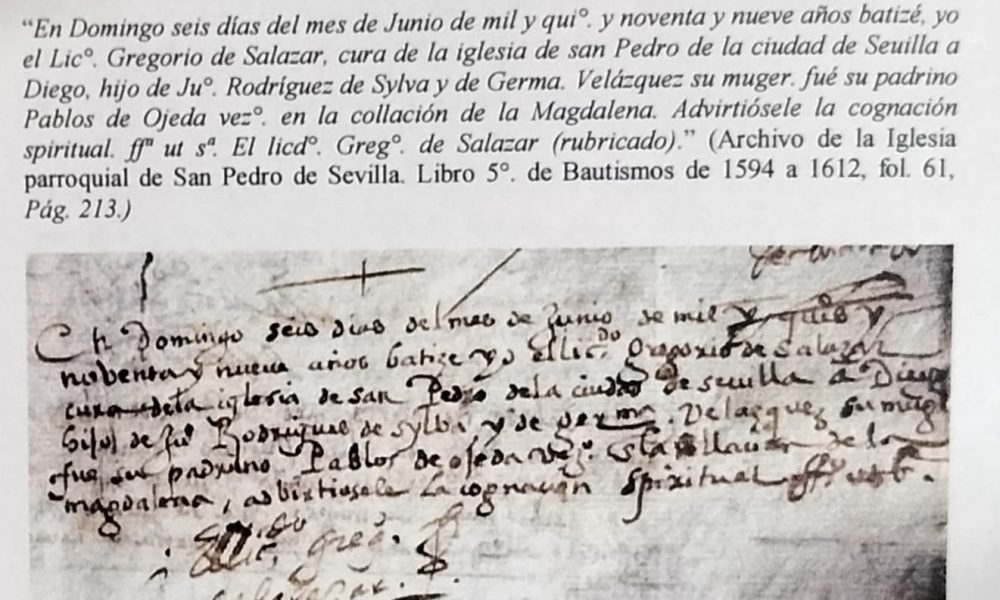 “En Domingo seis días del mes de Junio de mil y qui°. y noventa y nueve años batizé, yo
el Lic°. Gregorio de Salazar, cura de la iglesia de san Pedro de la ciudad de Seuilla a
Diego, hijo de Ju°. Rodríguez de Sylva y de Germa. Velázquez su muger. fué su padrino
Pablos de Ojeda vez°. en la collación de la Magdalena. Advirtiósele la cognación
spiritual. ffª ut sª. El licd°. Greg°. de Salazar (rubricado).” (Archivo de la Iglesia
parroquial de San Pedro de Sevilla. Libro 5°. de Bautismos de 1594 a 1612, fol. 61,
Pág. 213.)
En Domingo seis dias del mes de Junio de mil y quiº y
nobenta y nueve años batize yo el licdo gregorio de salazar
cura de la iglesia de san Pedro de la ciudad de seuilla a Diego
hijo de Juº Rodrigues de sylba y de germa. Velazquez su muger
fue su padrino Pablos de ojeda vezº. de la
magdalena, la cognacion spiritual
licdo greg.